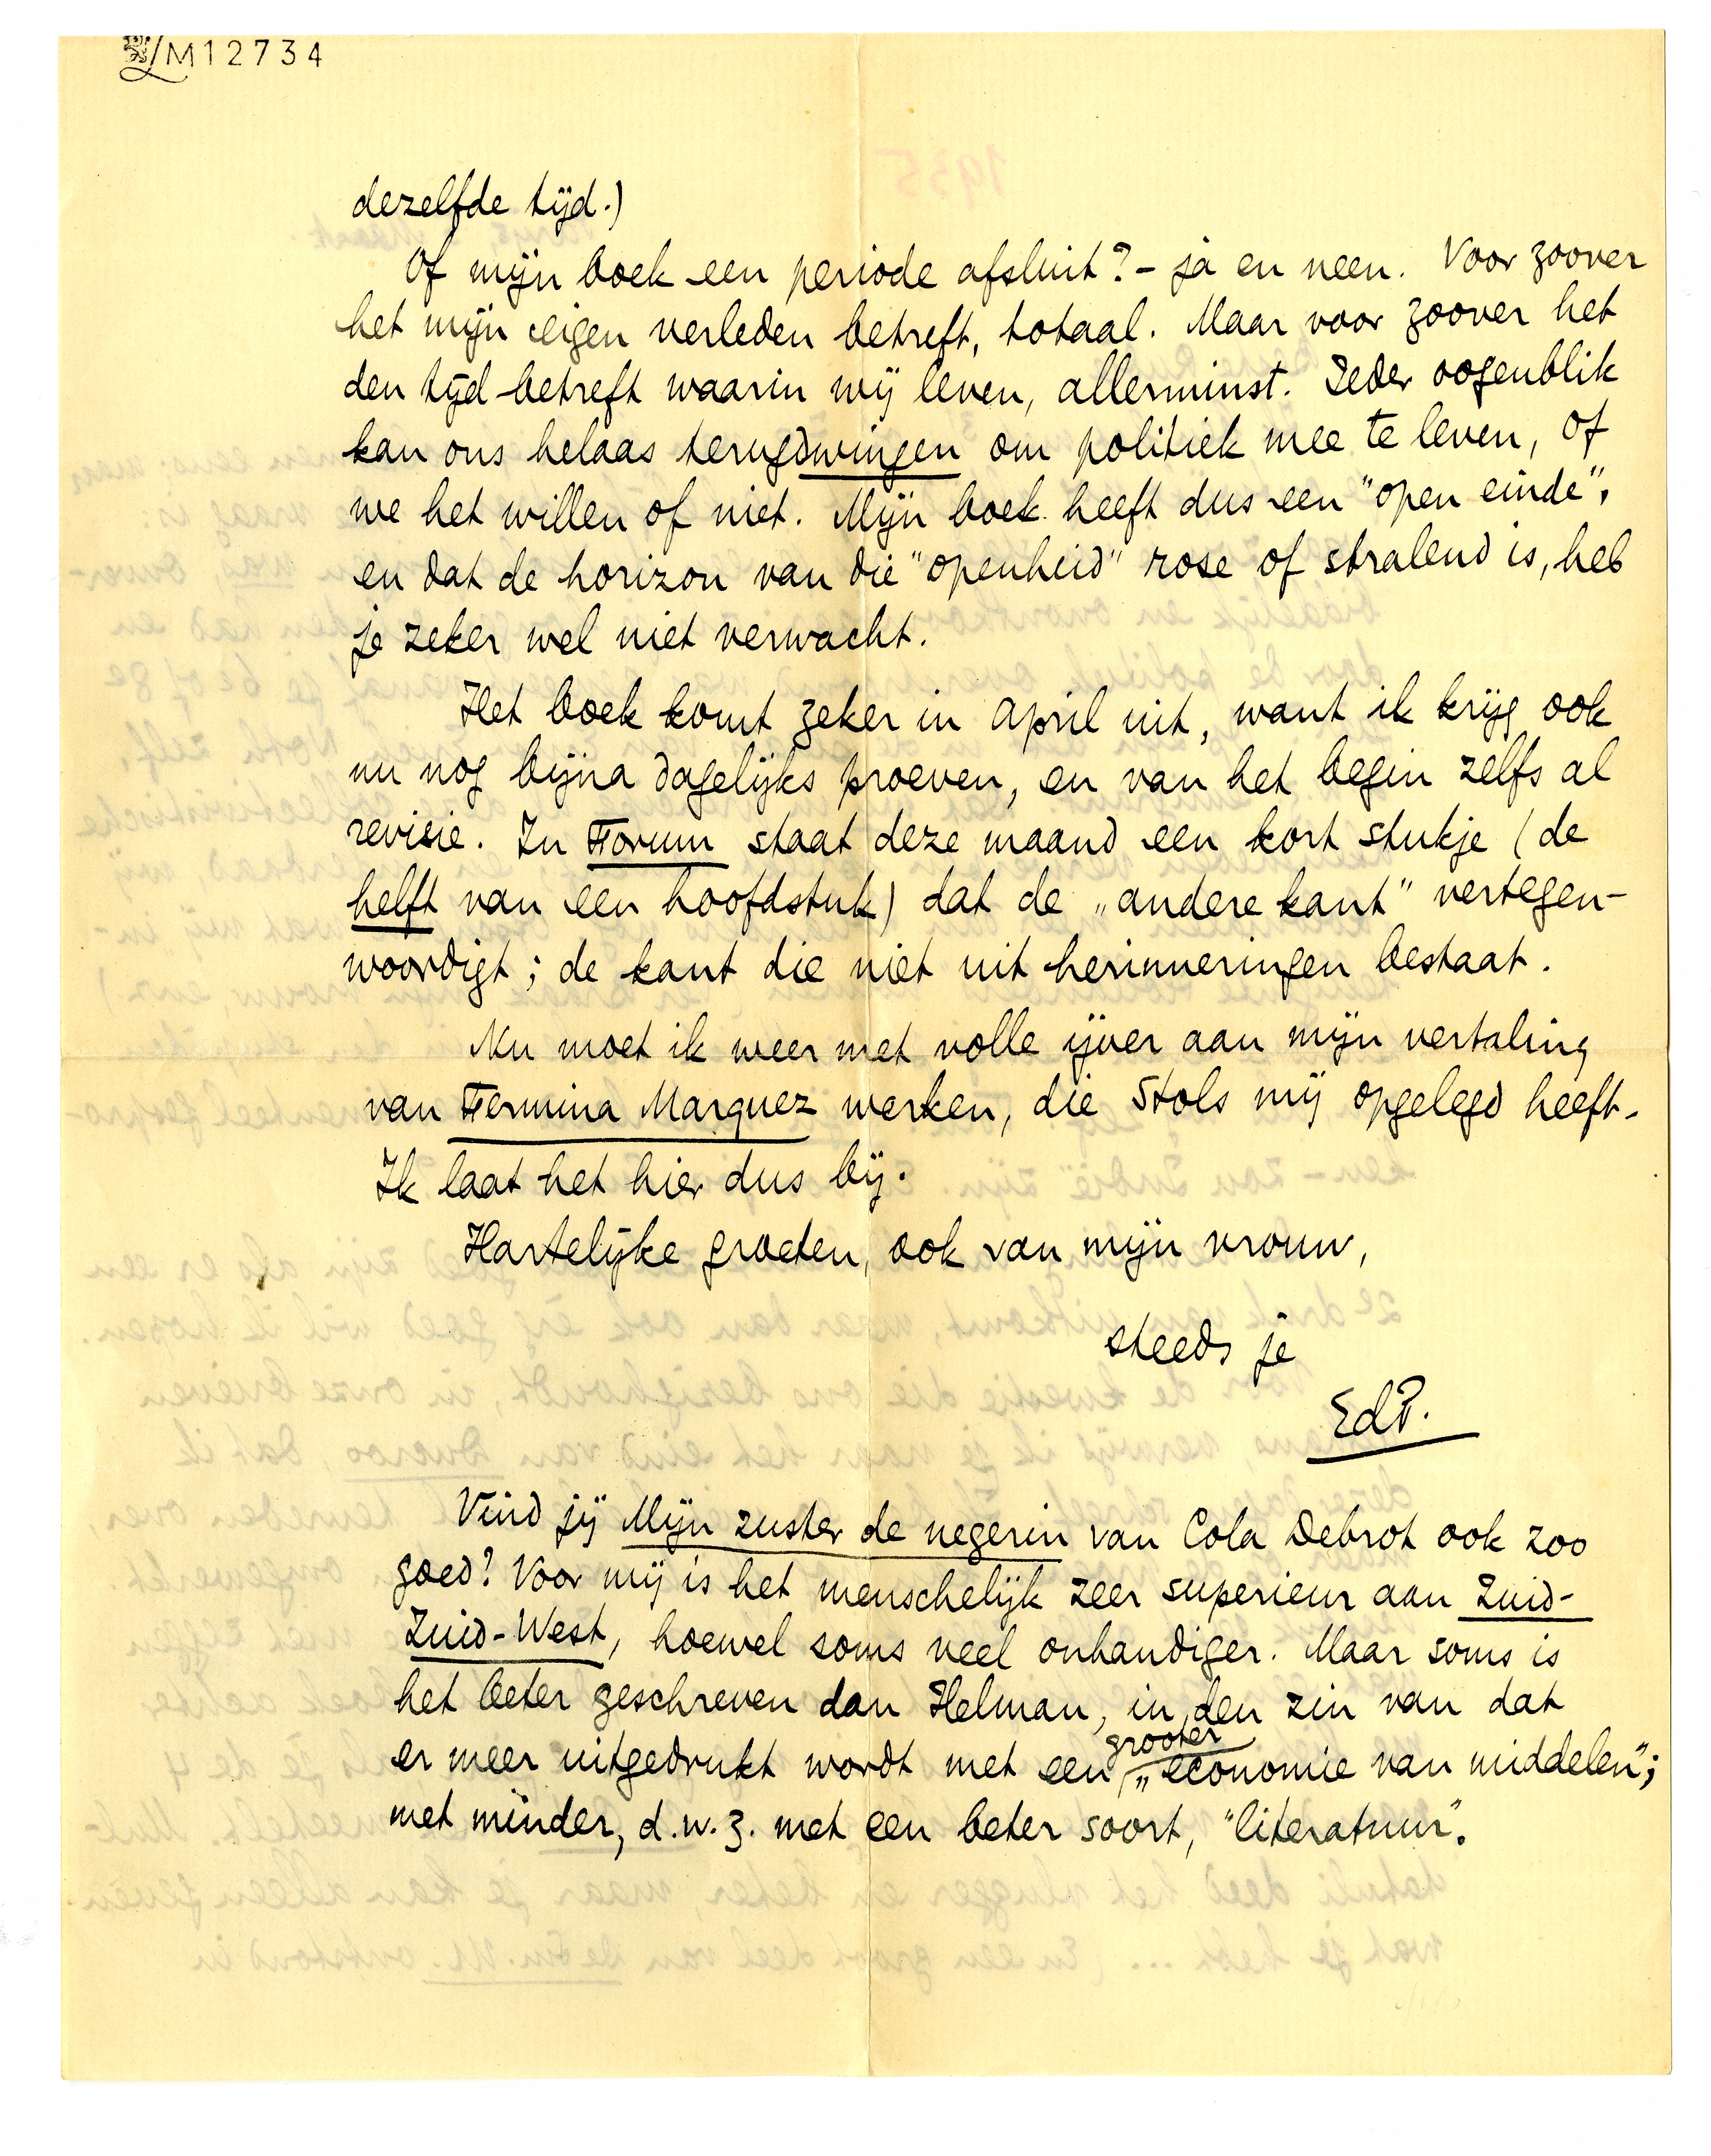 M12734
dezelfde tijd.)
Of mijn boek een periode afsluit? – ja en neen. Voor zoover
het mijn eigen verleden betreft, totaal. Maar voor zoover het
den tijd betreft waarin wij leven, allerminst. Ieder oogenblik
kan ons helaas terugdwingen om politiek mee te leven, of
we het willen of niet. Mijn boek heeft dus een "open einde",
en dat de horizon van die "openheid" rose of stralend is, heb
je zeker wel niet verwacht.
Het boek komt zeker in April uit, want ik krijg ook
nu nog bijna dagelijks proeven, en van het begin zelfs al
revisie. In Forum staat deze maand een kort stukje (de
helft van een hoofdstuk) dat de „andere kant" vertegen-
woordigt; de kant die niet uit herinneringen bestaat.
Nu moet ik weer met volle ijver aan mijn vertaling
van Fermina Marquez werken, die Stols mij opgelegd heeft.
Ik laat het hier dus bij.
Hartelijke groeten, ook van mijn vrouw,
steeds je
EdP.
Vind jij Mijn zuster de negerin van Cola Debrot ook zoo
goed? Voor mij is het menschelijk zeer superieur aan Zuid-
Zuid-West, hoewel soms veel onhandiger. Maar soms is
het beter geschreven dan Helman, in den zin van dat
er meer uitgedrukt wordt met een grooter „economie van middelen";
met minder, d.w.z. met een beter soort, "literatuur".